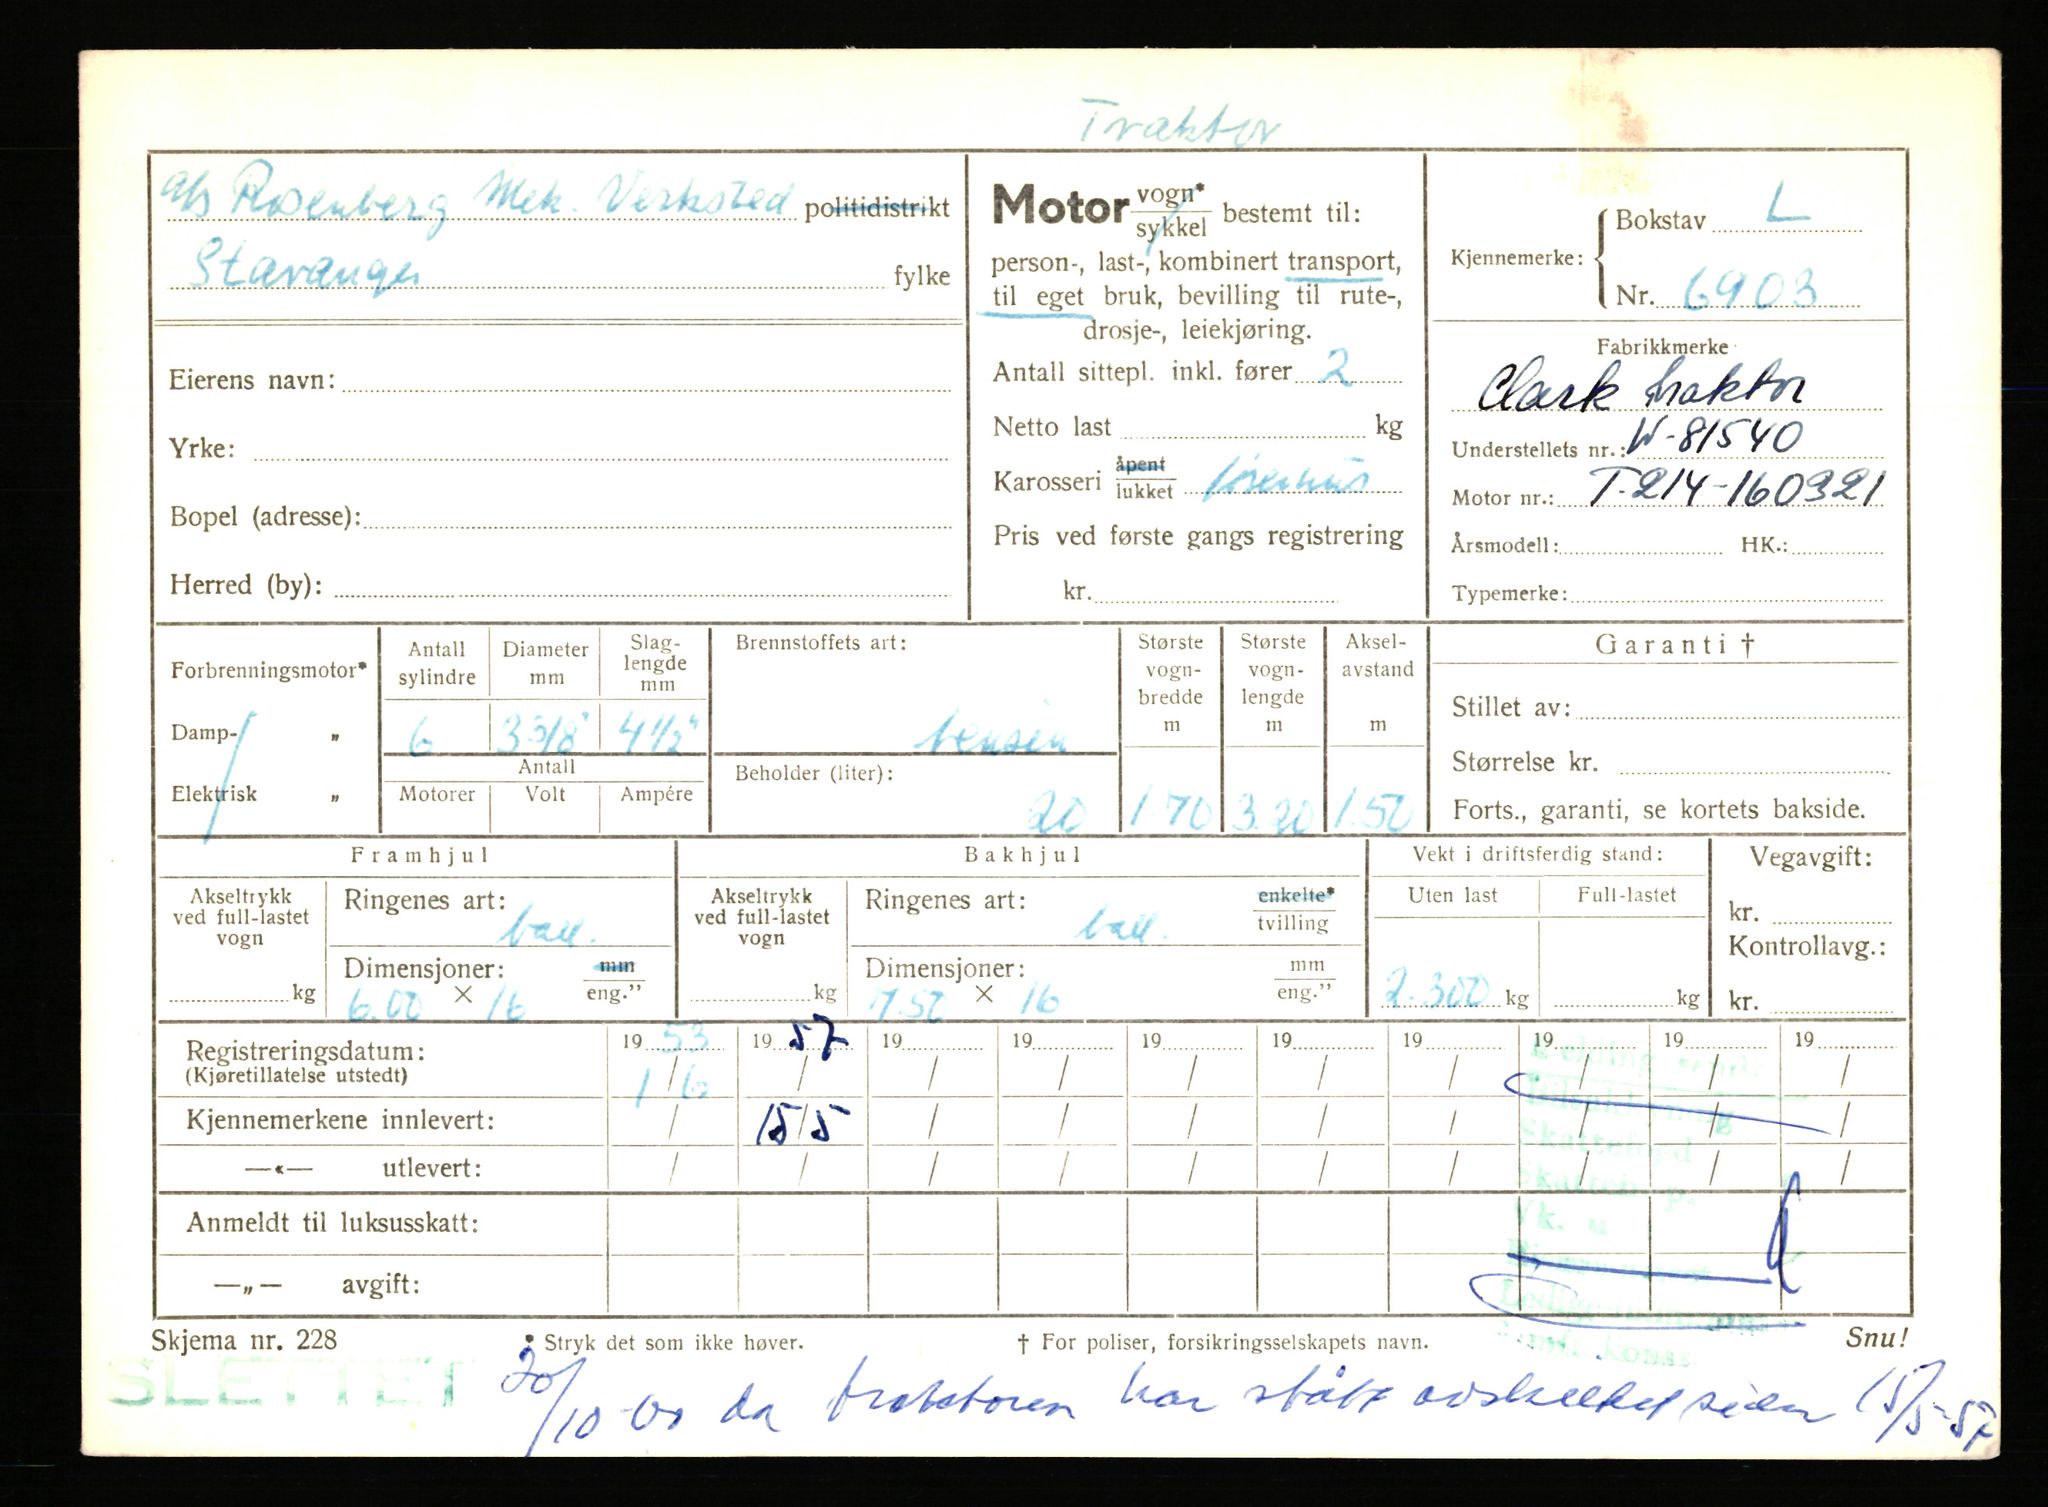 Traktor
A/s Rosenberg Mek. Verksted politidistrikt
Stavanger fylke
Eierens navn:
Yrke:
Bopel (adresse):
Herred (by):
Motor vogn* / sykkel bestemt til:
person-, last-, kombinert transport,
til eget bruk, bevilling til rute-,
drosje-, leiekjøring.
Antall sittepl. inkl. fører 2
Netto last kg
Karosseri åpent / lukket førerhus
Pris ved første gangs registrering
kr.
Kjennemerke: Bokstav L
Nr. 6903
Fabrikkmerke
Clark traktor
Understellets nr.: W-81540
Motor nr.: T.214-160321
Årsmodell: HK.:
Typemerke:
Forbrenningsmotor*
Damp- „
Elektrisk „
Antall sylindre
6
Diameter mm
3 3/8"
Slag-lengde mm
4 1/2"
Antall
Motorer Volt Ampére
Brennstoffets art:
bensin
Beholder (liter):
20
Største vogn-bredde m
1.70
Største vogn-lengde m
3.20
Aksel-avstand m
1.50
Garanti †
Stillet av:
Størrelse kr.
Forts., garanti, se kortets bakside.
Framhjul
Akseltrykk ved full-lastet vogn
kg
Ringenes art:
ball.
Dimensjoner: mm / eng."
6.00 × 16
Bakhjul
Akseltrykk ved full-lastet vogn
kg
Ringenes art: enkelte* / tvilling
ball.
Dimensjoner: mm / eng."
7.50 × 16
Vekt i driftsferdig stand:
Uten last Full-lastet
2.300 kg kg
Vegavgift:
kr.
Kontrollavg.:
kr.
Registreringsdatum: 19 53 19 57 19 19 19 19 19 19 19 19
(Kjøretillatelse utstedt) 1/6 / / / / / / / / /
Kjennemerkene innlevert: / 15/5 / / / / / / / /
—«— utlevert: / / / / / / / / / /
Anmeldt til luksusskatt:
—„— avgift:
Melding sendt
Skattefogd
Vk. u
Skjema nr. 228 * Stryk det som ikke høver. † For poliser, forsikringsselskapets navn. Snu!
SLETTET 20/10-60 da traktoren har stått avskiltet siden 15/5-57